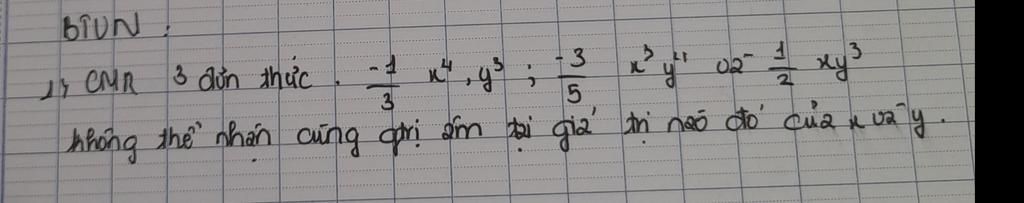 BTVN :
1, CMR 3 đơn thức . -1/3 x⁴, y³ ; -3/5 x³ y⁴ và 1/2 xy³
không thể nhận cùng gtrị âm tại giá trị nào đó của x và y .